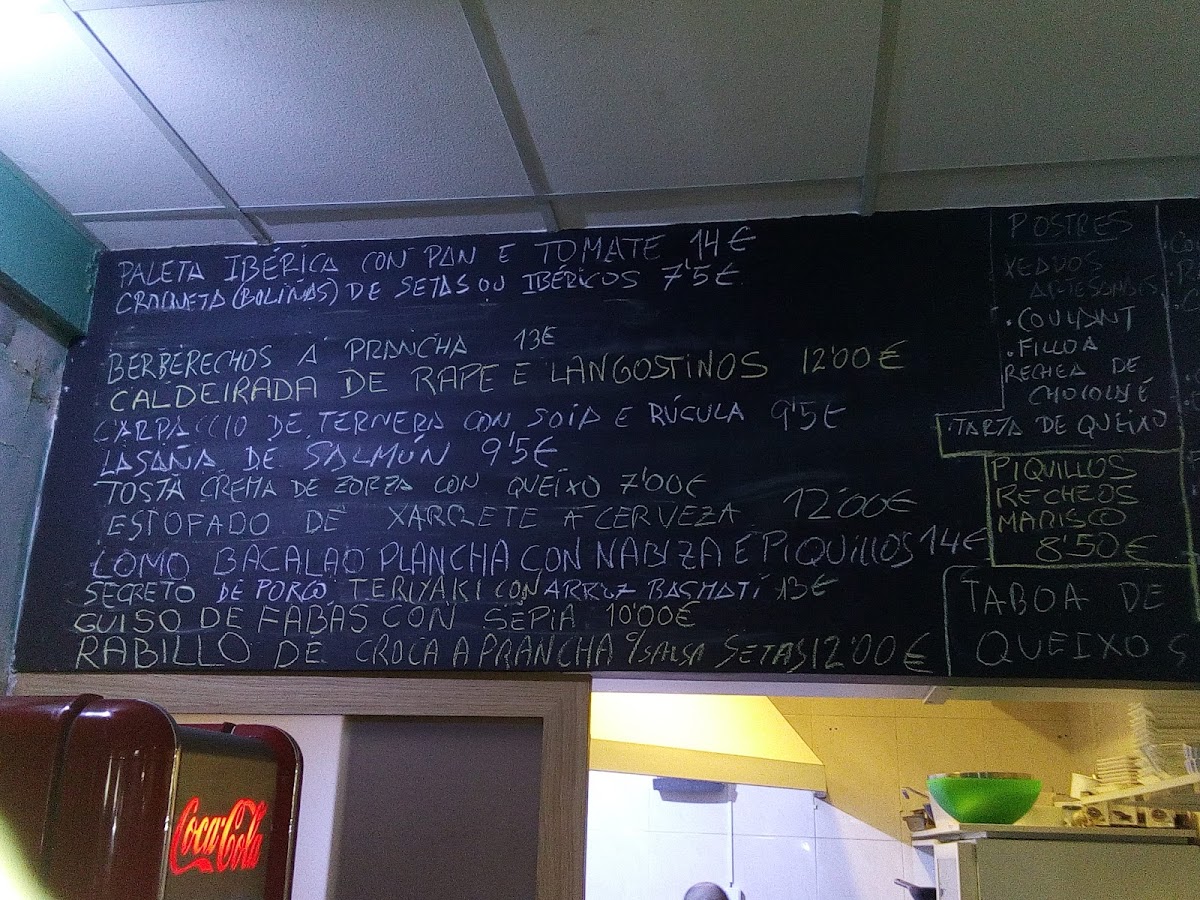 PALETA IBÉRICA CON PAN E TOMATE 14€
CROQUETA (BOLIÑAS) DE SETAS OU IBÉRICOS 7'5€
BERBERECHOS A PRANCHA 13€
CALDEIRADA DE RAPE E LANGOSTINOS 12'00€
CARPACCIO DE TERNERA CON SOIA E RÚCULA 9'5€
LASAÑA DE SALMÚN 9'5€
TOSTA CREMA DE ZORZA CON QUEIXO 7'00€
ESTOFADO DE XARRETE A CERVEZA 12'00€
LOMO BACALAO PLANCHA CON NABIZA E PIQUILLOS 14€
SECRETO DE PORCO TERIYAKI CON ARROZ BASMATI 13€
GUISO DE FABAS CON SEPIA 10'00€
RABILLO DE CROCA A PRANCHA C/SALSA SETAS 12'00€
POSTRES
XEADOS
ARTESANAIS
.COULANT
.FILLOA
RECHEA DE
CHOCOLATE
.TARTA DE QUEIXO
PIQUILLOS
RECHEOS
MARISCO
8'50€
TABOA DE
QUEIXOS
Coca-Cola